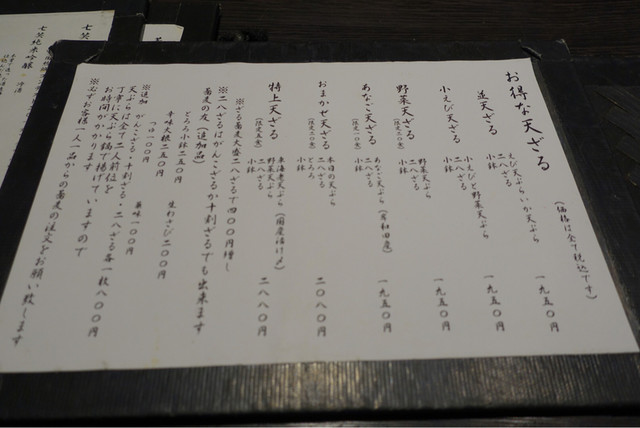 お得な天ざる
(価格は全て税込です)
並天ざる
えび天ぷらいか天ぷら
二八ざる
小鉢
一九五〇円
小えび天ざる
小えびと野菜天ぷら
二八ざる
小鉢
一九五〇円
野菜天ざる
(限定二〇食)
野菜天ぷら
二八ざる
小鉢
一九五〇円
あなご天ざる
(限定一〇食)
あなご天ぷら(岸和田産)
二八ざる
小鉢
一九五〇円
おまかせ天ざる
(限定二〇食)
本日の天ぷら
二八ざる
とろろ
小鉢
二〇八〇円
特上天ざる
(限定五食)
車海老天ぷら(国産活け〆)
野菜天ぷら
二八ざる
小鉢
二八八〇円
※ざる蕎麦大盛二八ざるで四〇〇円増し
※二八ざるはがんこざるか十割ざるでも出来ます
蕎麦の友(追加品)
とろろ小鉢二五〇円
辛味大根二五〇円
生わさび二〇〇円
つゆ一〇〇円
薬味一〇〇円
※追加 がんこざる・十割ざる・二八ざる各一枚八〇〇円
天ぷらは全て二人前位を
丁寧に天ぷら鍋で揚げていますので
お時間がかかります
※必ずお客様一人一品からの蕎麦の注文とお願い致します
七笑純米吟醸
七笑